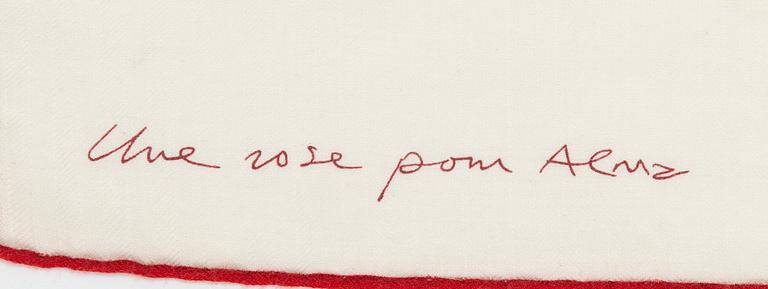 Une rose pour Alma